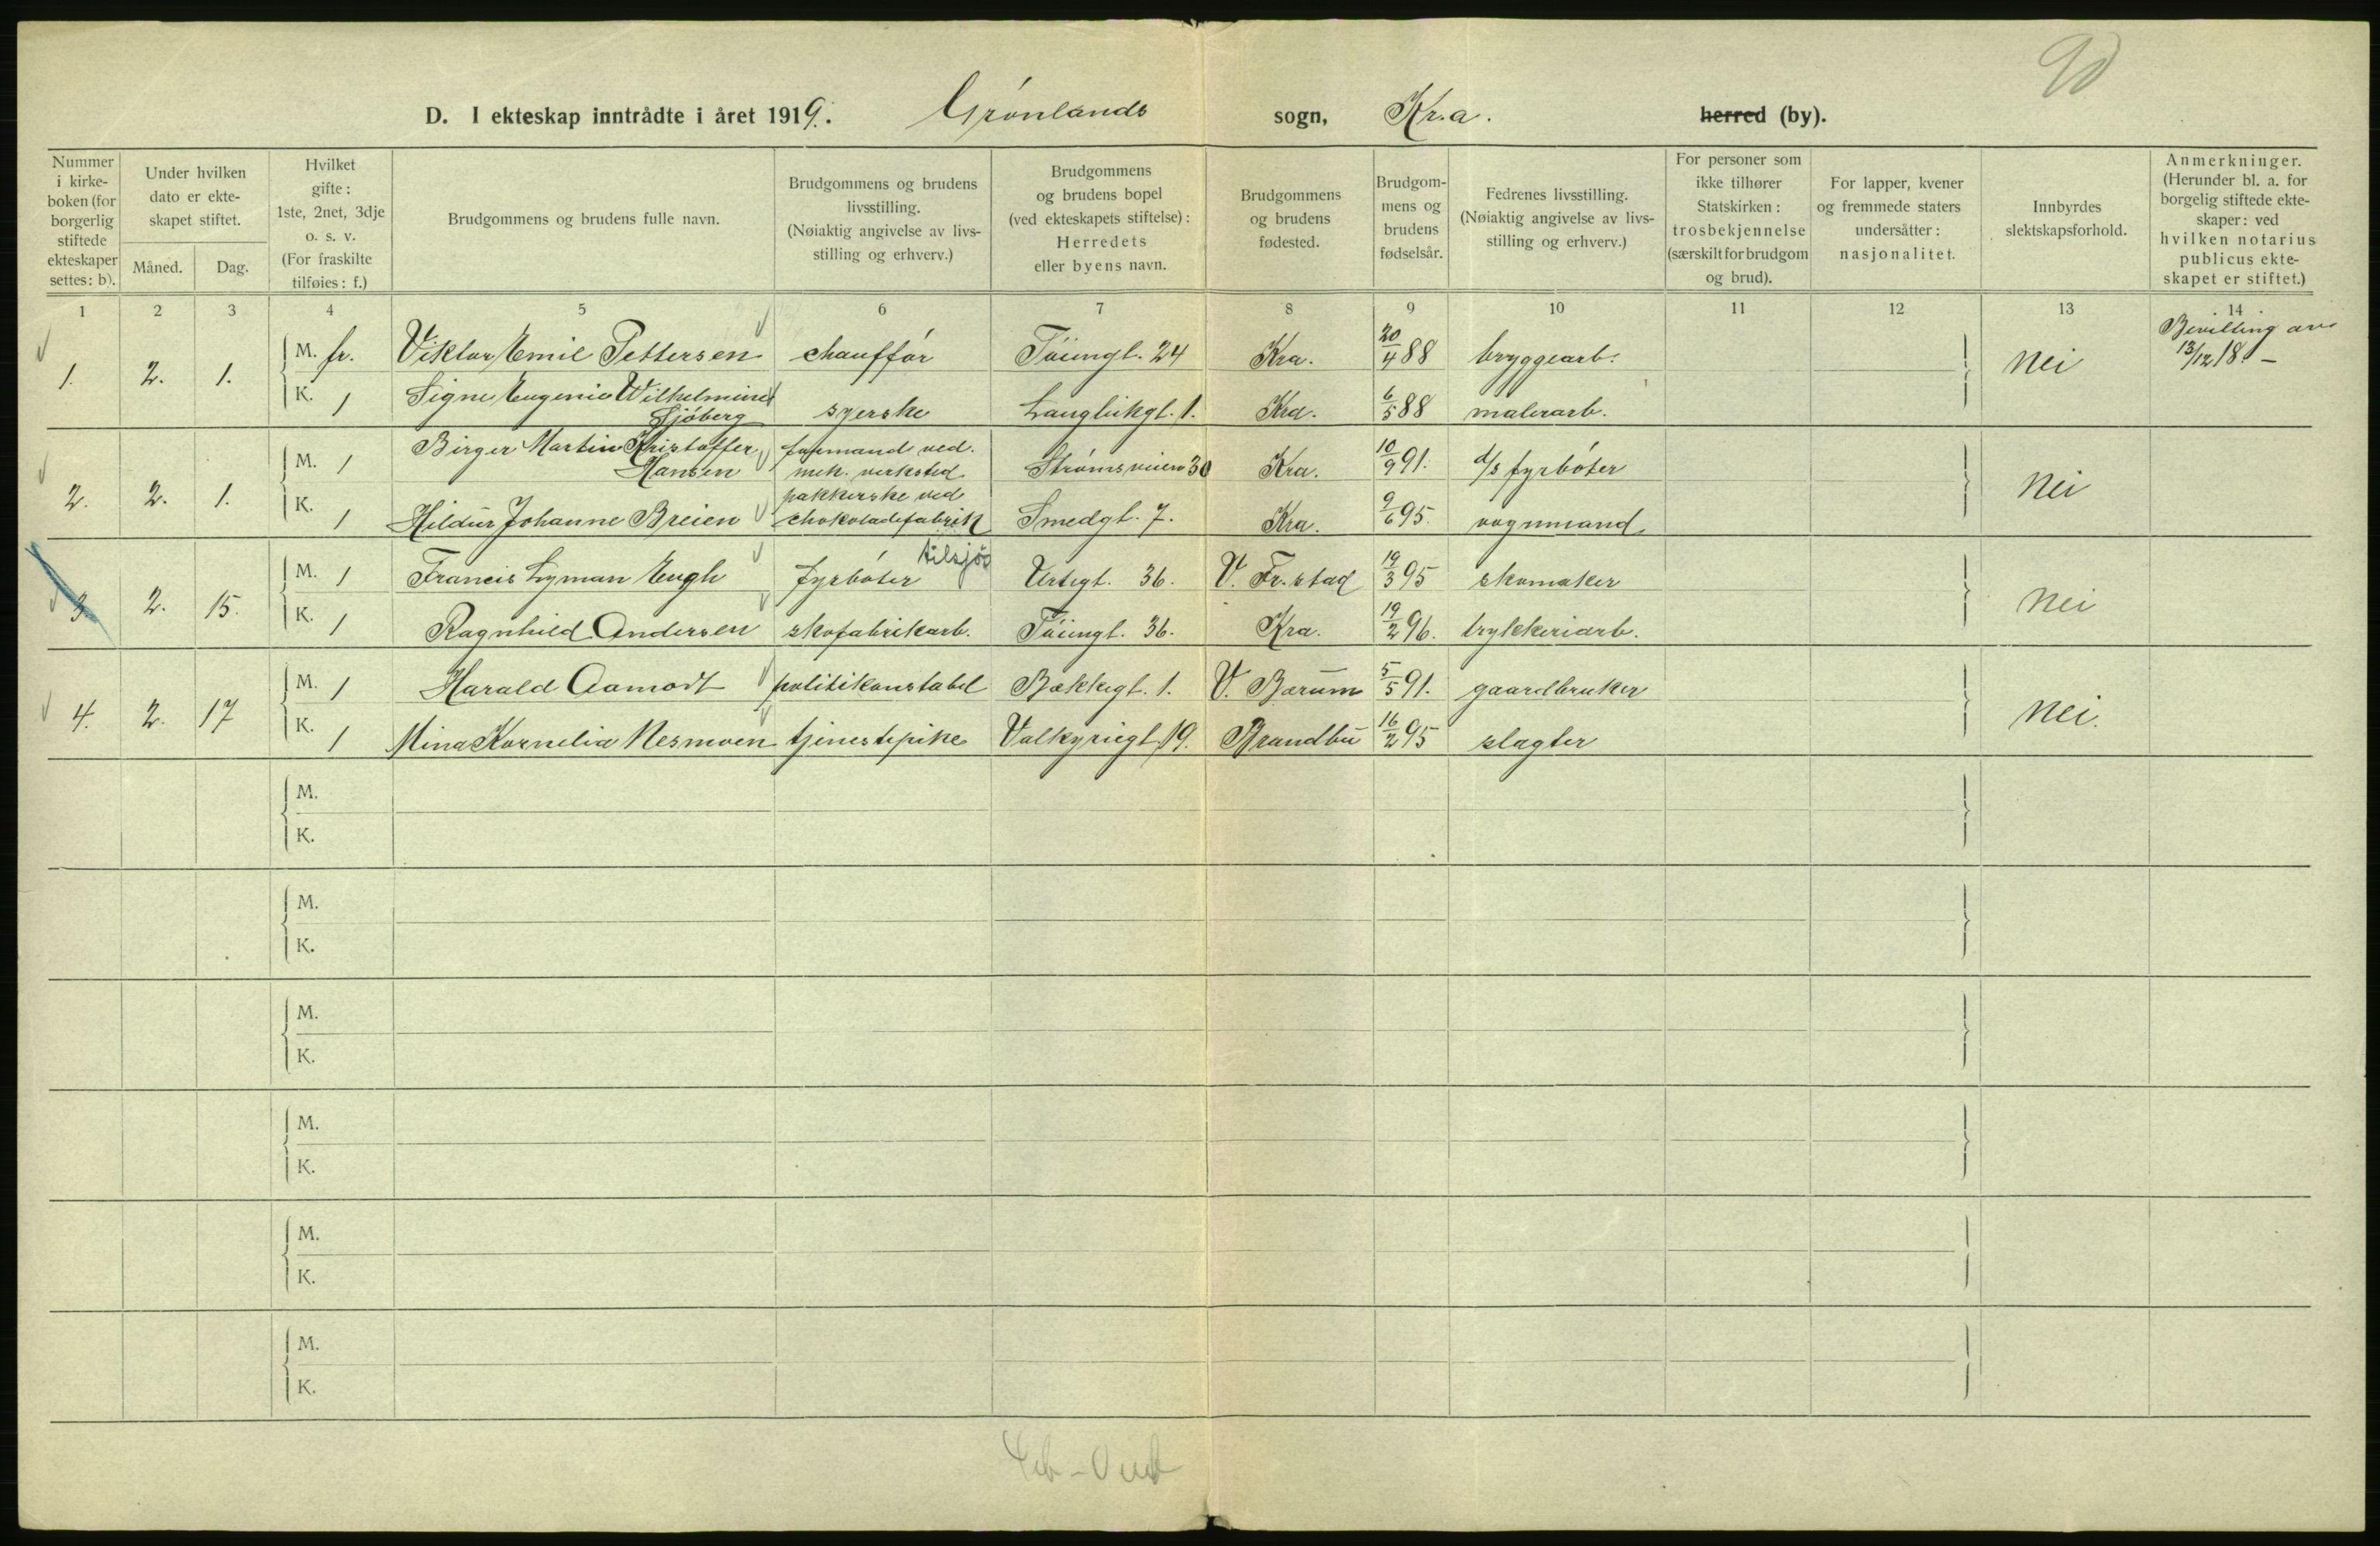 90
D. I ekteskap inntrådte i året 1919. Grønlands sogn, Kr.a. herred (by).
Nummer i kirke- boken (for borgerlig stiftede ekteskaper settes: b).
Under hvilken dato er ekte- skapet stiftet.
Måned. Dag.
Hvilket gifte: 1ste, 2net, 3dje o. s. v. (For fraskilte tilføies: f.)
Brudgommens og brudens fulle navn.
Brudgommens og brudens livsstilling. (Nøiaktig angivelse av livs- stilling og erhverv.)
Brudgommens og brudens bopel (ved ekteskapets stiftelse): Herredets eller byens navn.
Brudgommens og brudens fødested.
Brudgom- mens og brudens fødselsår.
Fedrenes livsstilling. (Nøiaktig angivelse av livs- stilling og erhverv.)
For personer som ikke tilhører Statskirken: trosbekjennelse (særskilt for brudgom og brud).
For lapper, kvener og fremmede staters undersåtter: nasjonalitet.
Innbyrdes slektskapsforhold.
Anmerkninger. (Herunder bl. a. for borgelig stiftede ekte- skaper: ved hvilken notarius publicus ekte- skapet er stiftet.)
1 2 3 4 5 6 7 8 9 10 11 12 13 14
1. 2. 1. M. fr. Viktor Emil Pettersen chauffør Tøiengt. 24 Kra. 20/4 88 bryggearb. Nei Bevilling av 13/12 18. –
K. 1 Signe Eugenie Wilhelmine Sjöberg syerske Langleikgt. 1. Kra. 6/5 88 malerarb.
2. 2. 1. M. 1 Birger Martin Kristoffer Hansen formand ved mek. verksted Strømsveien 30 Kra. 10/9 91. d/s fyrbøter Nei
K. 1 Hildur Johanne Breien pakkerske ved chokoladefabrik Smedgt. 7. Kra. 9/6 95. vognmand
3. 2. 15. M. 1 Francis Lyman Engh fyrbøter tilsjøs Urtegt. 36. V. Fr.stad 19/3 95 skomaker Nei
K. 1 Ragnhild Andersen skofabrikarb. Tøiengt. 36. Kra. 19/2 96. trykkeriarb.
4. 2. 17 M. 1 Harald Aamodt politikonstabel Bækkegt. 1. V. Bærum 5/5 91. gaardbruker Nei.
K. 1 Mina Kornelia Nesmoen tjenestepike Valkyriegt. 19. Brandbu 16/2 95 slagter
M.
K.
M.
K.
M.
K.
M.
K.
M.
K.
M.
K.